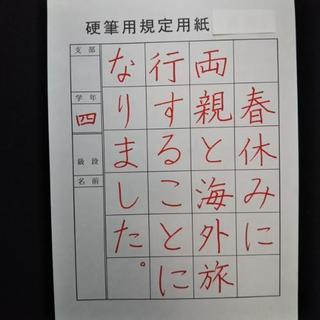 硬筆用規定用紙
春休みに
両親と海外旅
行することに
なりました。
支部
学年
四
級段
名前